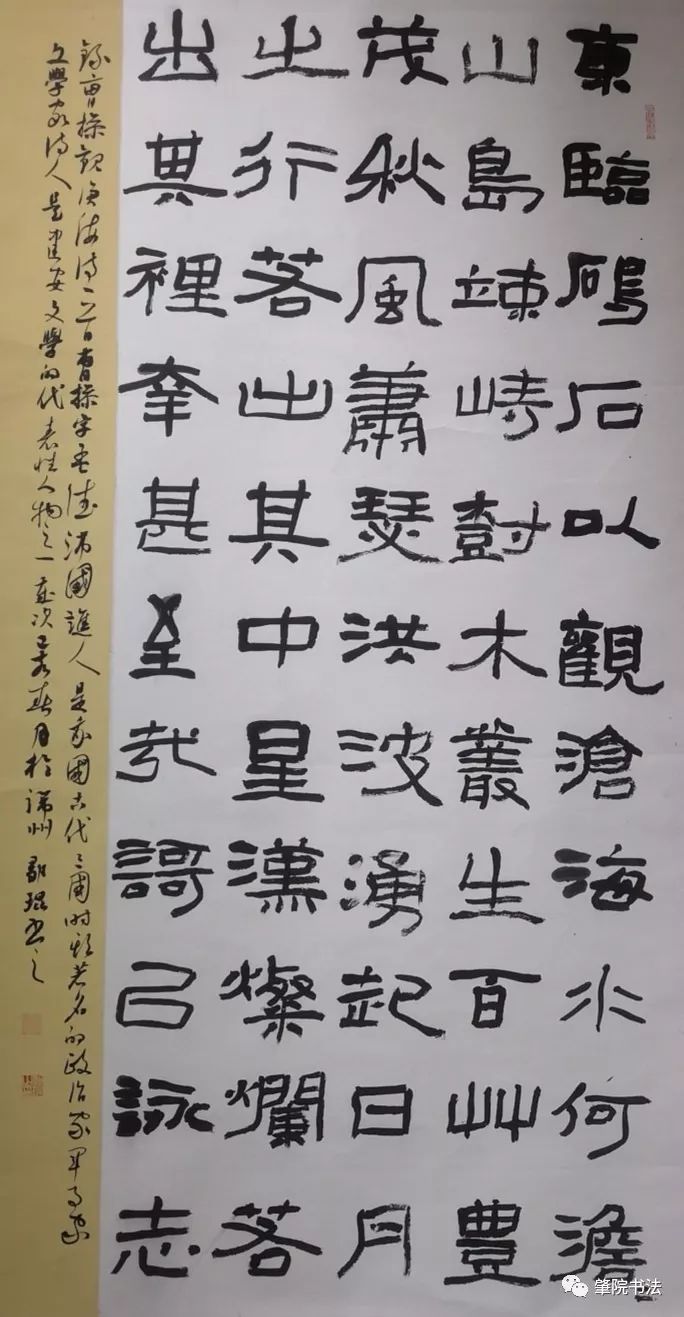 東臨碣石以觀滄海水何澹
山島竦峙尌木叢生百艸豊
茂秋風蕭瑟洪波湧起日月
之行若出其中星漢燦爛若
出其裡幸甚至哉謌㠯詠志
錄曹操觀滄海詩一首曹操字孟德沛國譙人是我國古代三國時期著名的政治家軍事家
文學家詩人是建安文學的代表性人物之一歲次己亥春月於端州 琨書之
肇院书法